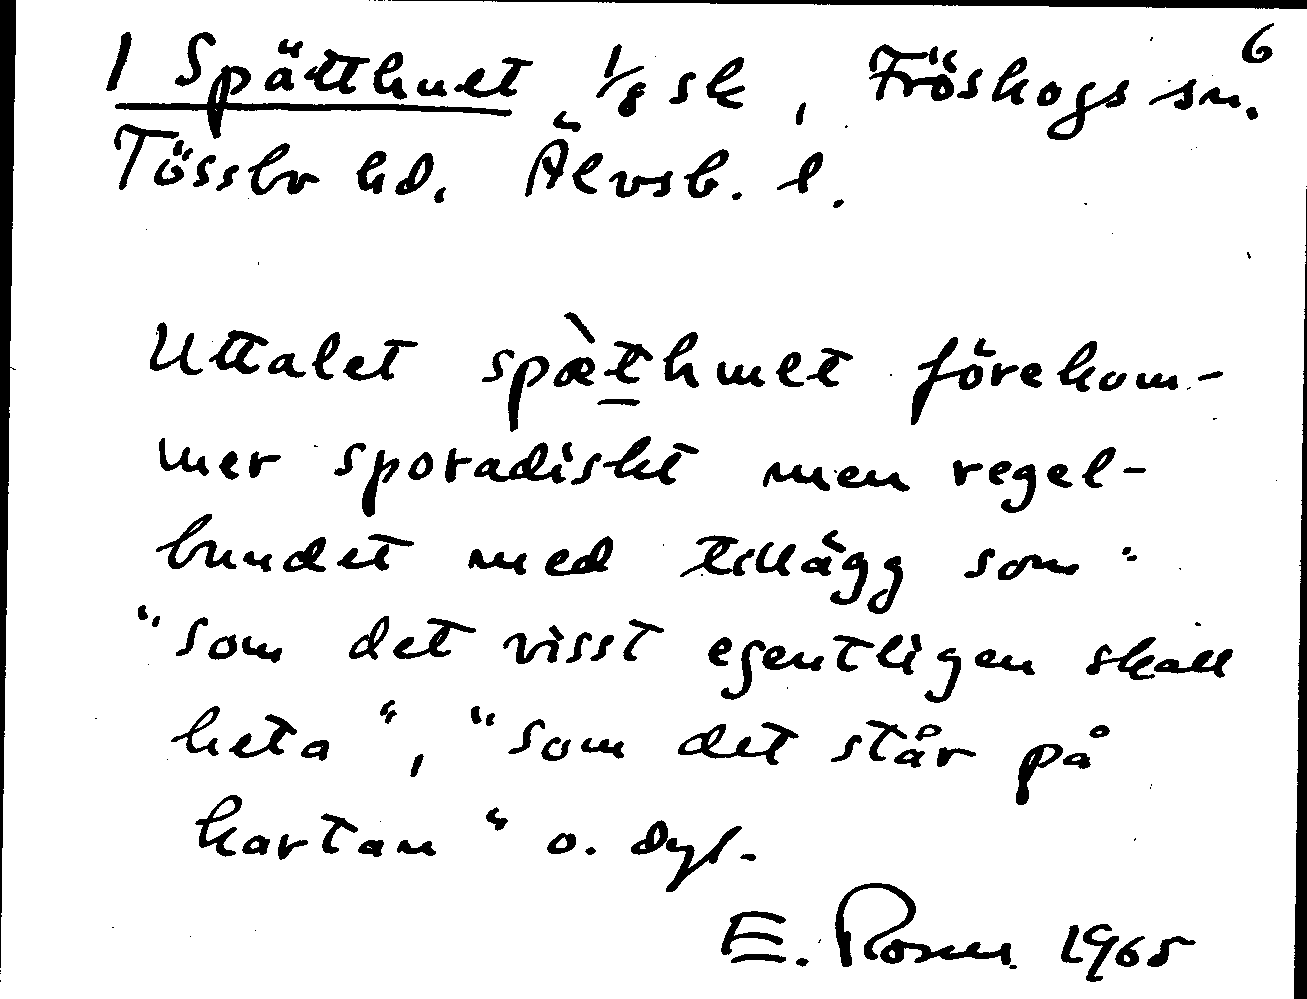 1 Spätthult 1/8 sk, Fröskogs sn. 6
Tössbo hd. Älvsb. l.
Uttalet spæ̀thult förekom-
mer sporadiskt men regel-
bundet med tillägg som:
"som det visst egentligen skall
heta", "som det står på
kartan" o. dyl.
E. Rosen 1965